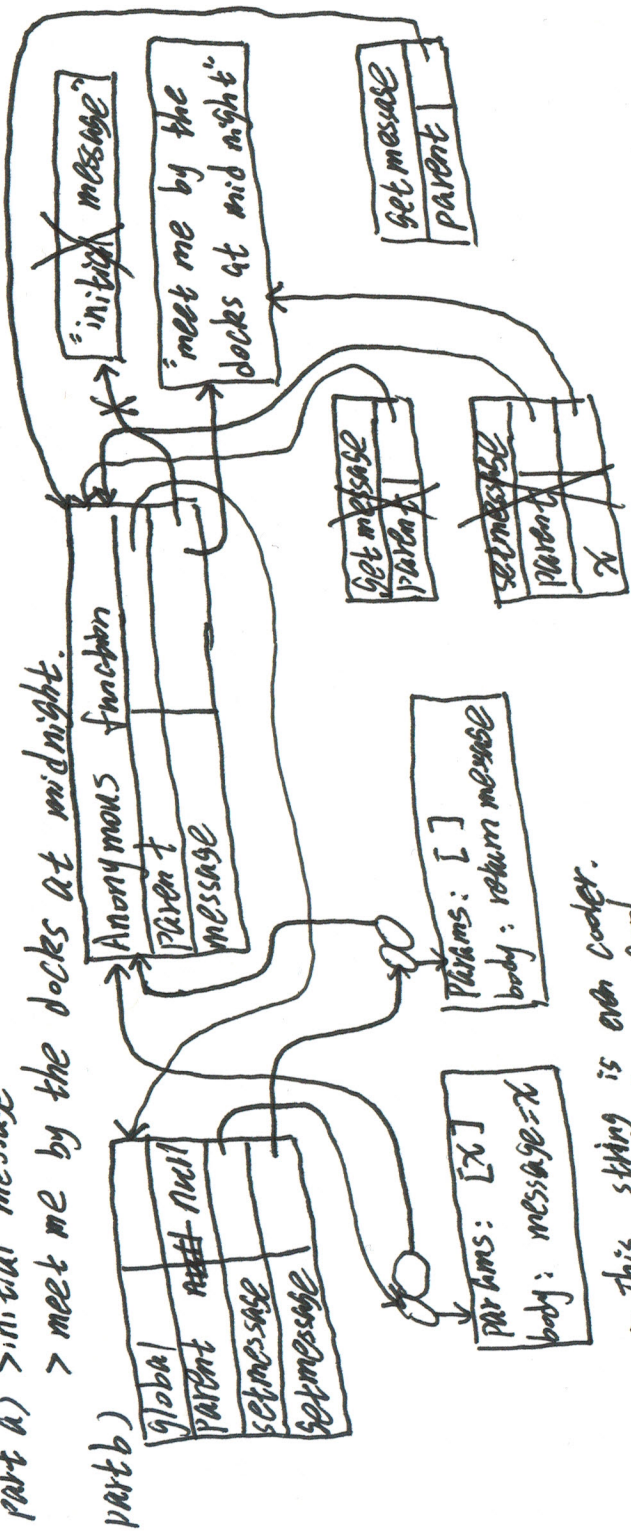 part a) > initial message
> meet me by the docks at midnight.
part b)
global
parent null
setmessage
getmessage
Anonymous function
parent
message
"initial message"
"meet me by the
docks at mid night"
getmessage
parent
getmessage
parent
setmessage
parent
x
params: [x]
body: message=x
params: [ ]
body: return message
this string is even cooler.